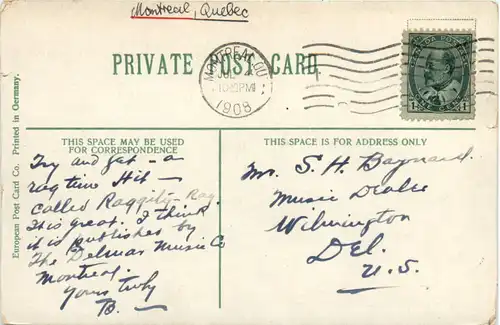 Montreal, Quebec
PRIVATE POST CARD
MONTREAL, QUE
PM
1908
CANADA POSTAGE
1 1
THIS SPACE MAY BE USED
FOR CORRESPONDENCE
Try and get - a
rag time Hit -
called Raggity-Rag.
It is great. I think
it is published by
The Delmar Music Co
Montreal.
Yours truly
B. -
THIS SPACE IS FOR ADDRESS ONLY
Mr. S. H. Baynard.
Music Dealer
Wilmington
Del.
U.S.
European Post Card Co. Printed in Germany.